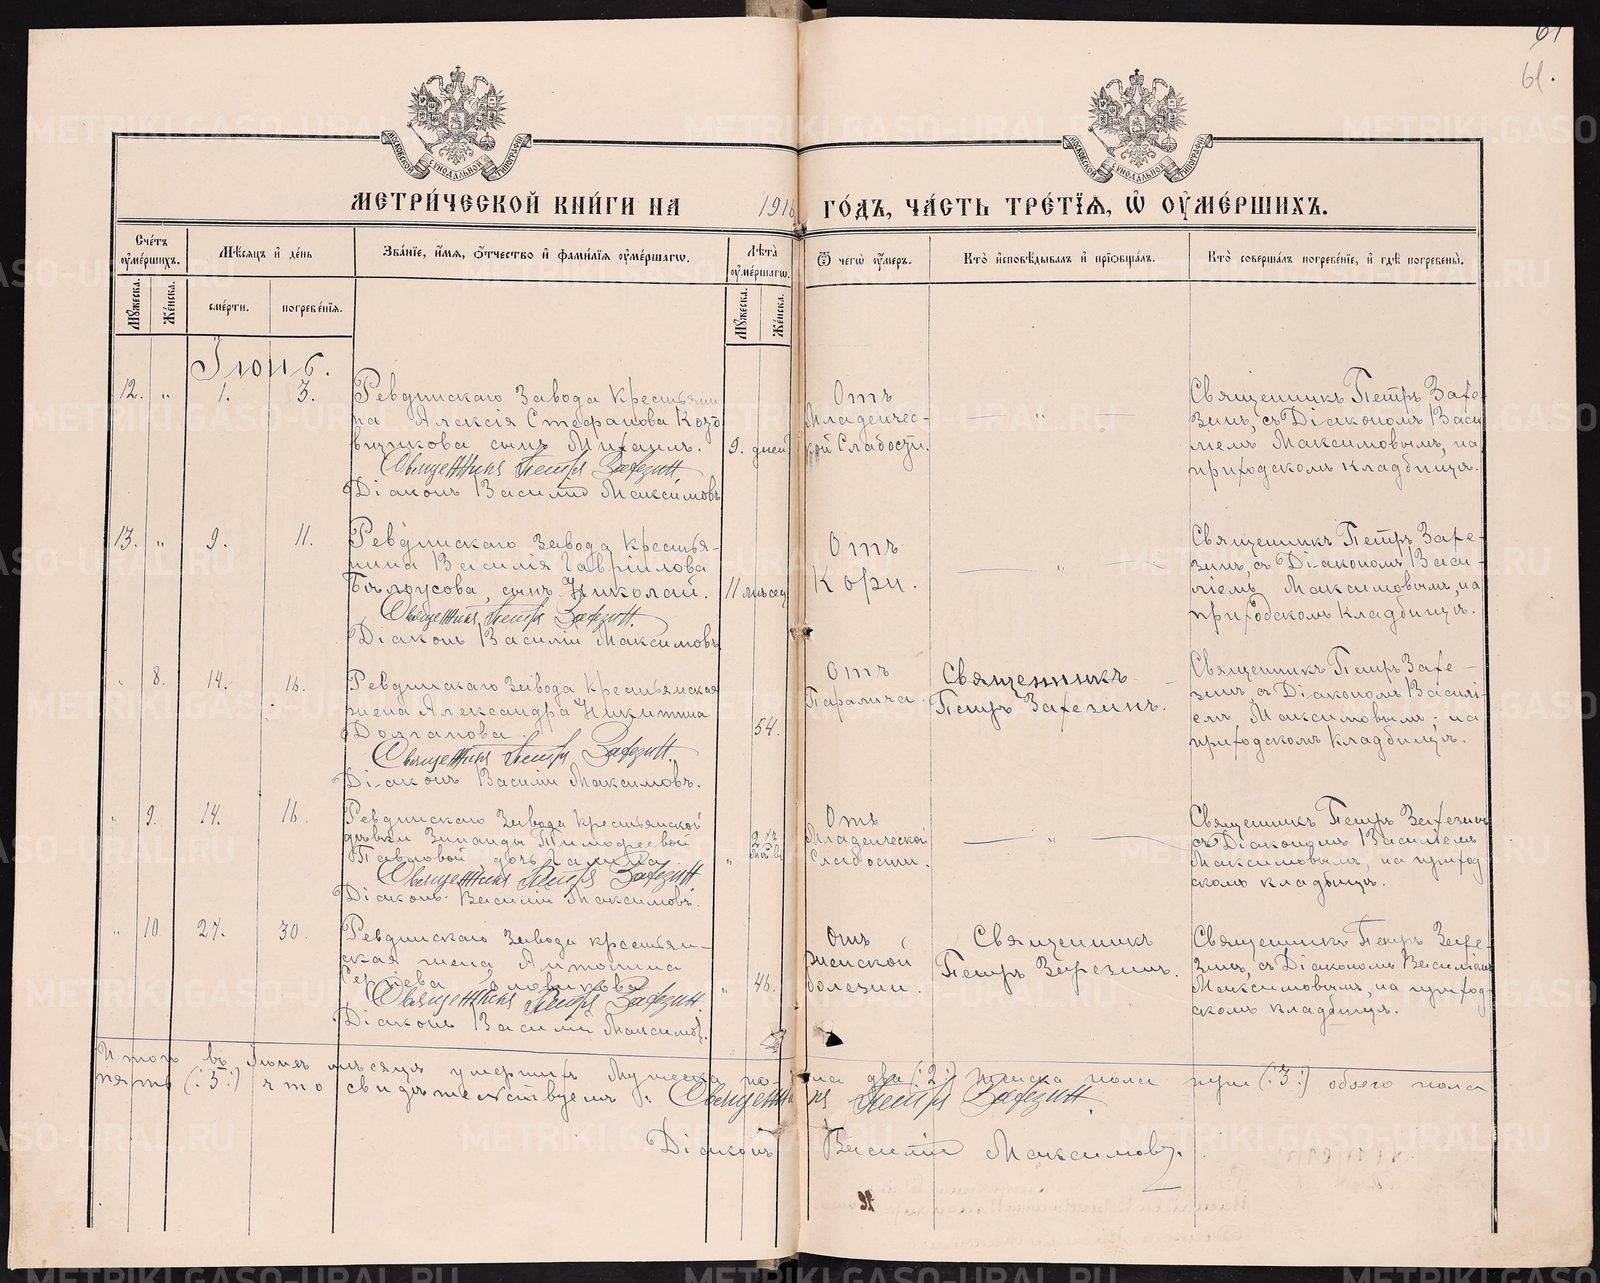 61
61.
МОСКОВСКОЙ СѴНОДАЛЬНОЙ ТИПОГРАФІИ
МОСКОВСКОЙ СѴНОДАЛЬНОЙ ТИПОГРАФІИ
МЕТРИ́ЧЕСКОЙ КНИ́ГИ НА 191 ГО́ДЪ, ЧА́СТЬ ТРЕ́ТІѦ, Ѡ ОУМЕ́РШИХЪ.
Сче́тъ оуме́ршихъ.
Мѣ́сяцъ и де́нь
Зва́нїе, и́мѧ, о́тчество и фами́лїѧ оуме́ршагѡ.
Лѣ́та оуме́ршагѡ.
Ѿ чегѡ̀ оу́меръ.
Кто̀ исповѣ́дывалъ и прїобща́лъ.
Кто̀ соверша́лъ погребе́нїе, и гдѣ̀ погребены̀.
Мꙋ́жеска.
Же́нска.
сме́рти.
погребе́нїѧ.
Мꙋ́жеска.
Же́нска.
Іюнь.
12. " 1. 3.
Ревдинскаго Завода Крестьяни
на Алексія Стефанова Козо
вникова сынъ Михаилъ.
Священникъ Петръ Зафезин
Діаконъ Василий Максимовъ
9. дней
Отъ
Младенчес-
кой Слабости.
— " —
Священникъ Петръ Зафе-
зинъ, съ Діакономъ Васи
ліемъ Максимовымъ, на
приходскомъ кладбищѣ.
13. " 9. 11.
Ревдинскаго Завода Кресть-
нина Василія Гавріилова
Бѣлоусова, сынъ Николай.
Священникъ Петръ Зафезин.
Діаконъ Василій Максимовъ
11 мѣсяц
Отъ
Кори.
— " —
Священникъ Петръ Зафе-
зинъ, съ Діакономъ Васи-
ліемъ Максимовымъ, на
приходскомъ кладбищѣ.
" 8. 14. 16.
Ревдинскаго Завода Крестьянская
жена Александра Никитина
Долганова.
Священникъ Петръ Зафезин.
Діаконъ Василій Максимовъ.
54.
Отъ
Паралича.
Священникъ
Петръ Зафезинъ.
Священникъ Петръ Зафе-
зинъ, съ Діакономъ Василі-
емъ Максимовымъ, на
приходскомъ кладбищѣ.
" 9. 14. 16.
Ревдинскаго Завода Крестьянской
дѣвки Зинаиды Тимофеевой
Павловой, дочь Галина.
Священникъ Петръ Зафезин
Діаконъ Василій Максимовъ.
" 2
Отъ
Младенческой
Слабости.
— " —
Священникъ Петръ Зафезинъ
съ Діакономъ Василіемъ
Максимовымъ, на приход
скомъ кладбищѣ.
" 10. 27. 30.
Ревдинскаго Завода крестьян-
ская жена, Антонина
Сергіева
Священникъ Петръ Зафезин.
Діаконъ Василій Максимовъ.
" 46.
Отъ
женской
болезни.
Священникъ
Петръ Зафезинъ.
Священникъ Петръ Зафе-
зинъ, съ Діакономъ Василіемъ
Максимовымъ, на приход-
скомъ кладбищѣ.
Итого въ Іюнѣ мѣсяцѣ умершихъ Мужеска по- ла два (:2:) женска пола три (:3:) обоего пола
пять (:5:) что свидѣтельствуемъ: Священникъ Петръ Зафезин.
Діаконъ Василій Максимовъ.